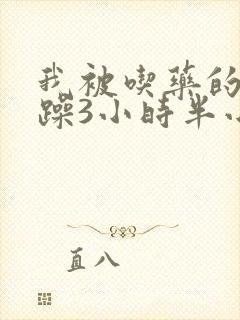 我被喫藥的
躁3小時半小
直八